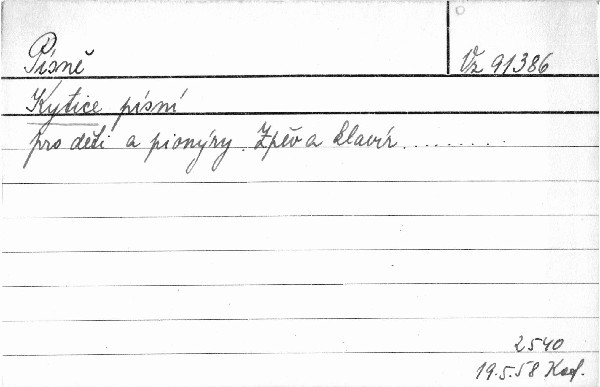 Písně
Vz 91386
Kytice písní
pro děti a pionýry. Zpěv a klavír.........
2540
19.5.58 Kad.